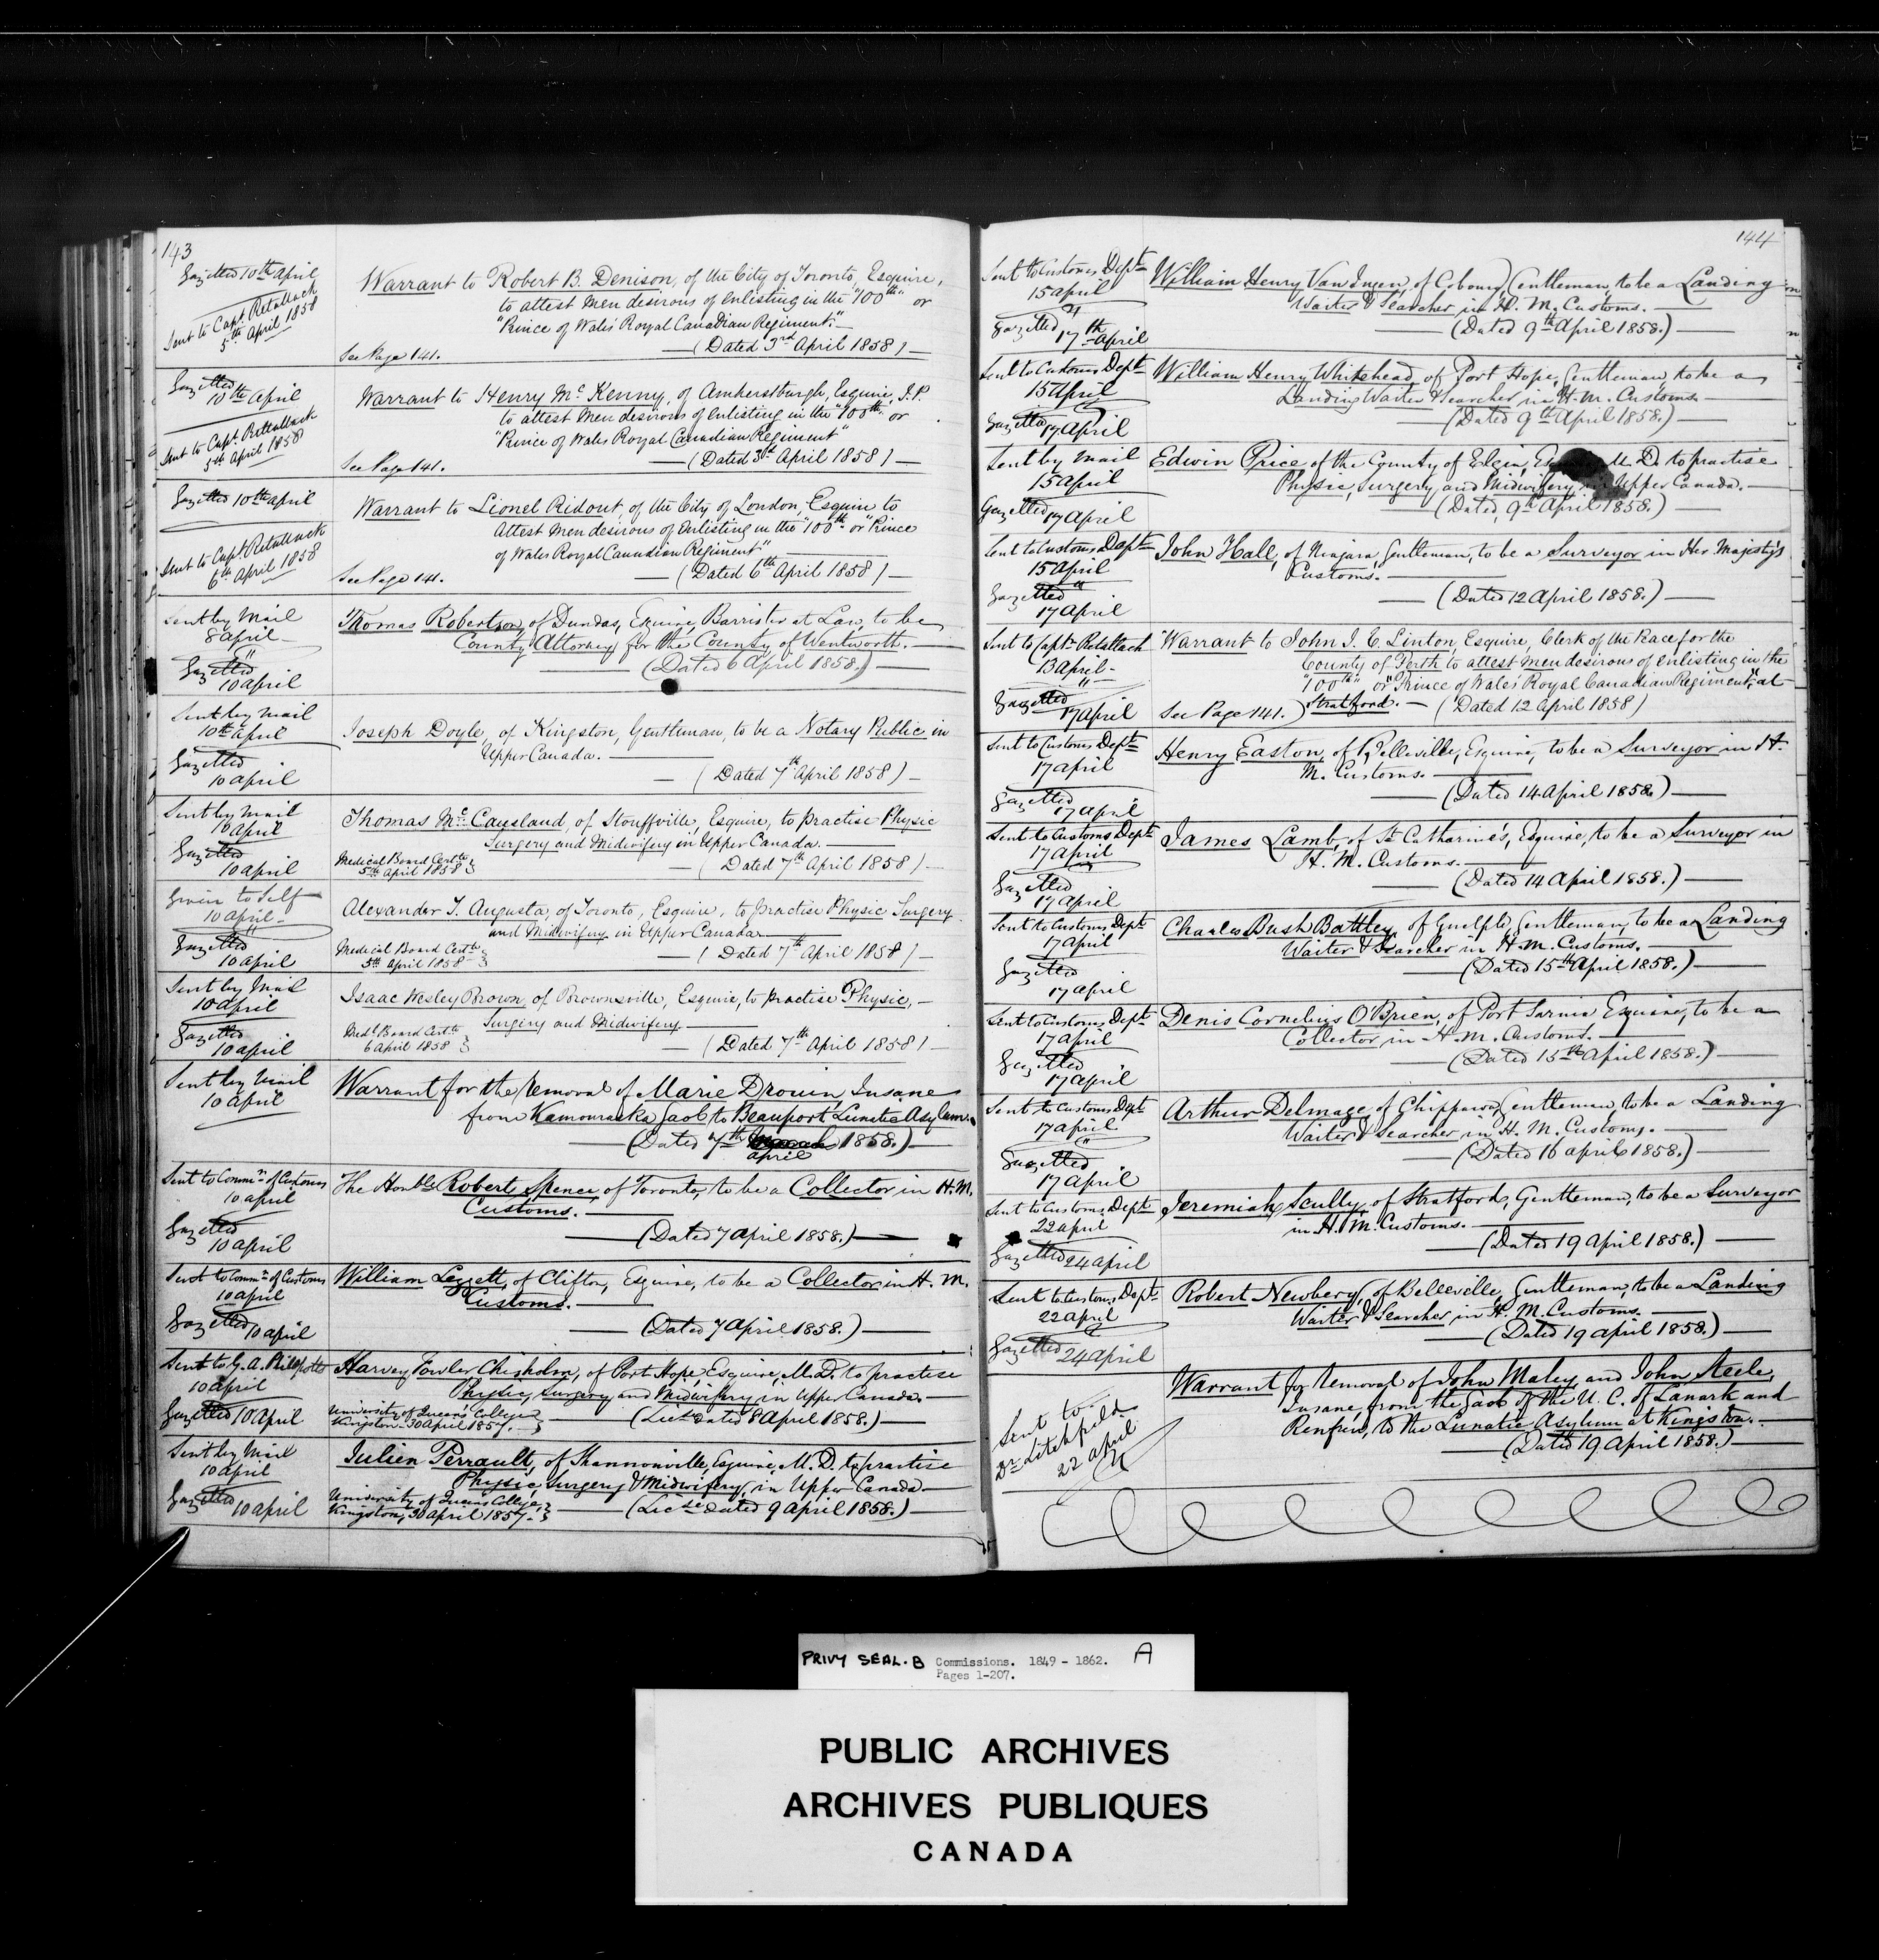 143
Gazetted 10th April
Sent to Capt. Retallack
5th April 1858
Warrant to Robert B. Denison, of the City of Toronto, Esquire,
to attest men desirous of enlisting in the "100th" or
"Prince of Wales' Royal Canadian Regiment."
See Page 141.
(Dated 3rd April 1858)
Gazetted
10th April
Sent to Capt. Retallack
5th April 1858
Warrant to Henry McKenny, of Amherstburgh, Esquire, J.P.
to attest men desirous of enlisting in the "100th" or
"Prince of Wales Royal Canadian Regiment"
See Page 141.
(Dated 3d April 1858)
Gazetted 10th April
Sent to Capt. Retallack
6th April 1858
Warrant to Lionel Ridout, of the City of London, Esquire to
attest men desirous of enlisting in the "100th" or "Prince
of Wales Royal Canadian Regiment"
See Page 141.
(Dated 6th April 1858)
Sent by Mail
8 April
Gazetted
10 April
Thomas Robertson, of Dundas, Esquire, Barrister at Law, to be
County Attorney for the County of Wentworth.
(Dated 6 April 1858.)
Sent by Mail
10th April
Gazetted
10 April
Joseph Doyle, of Kingston, Gentleman, to be a Notary Public in
Upper Canada.
(Dated 7th April 1858)
Sent by Mail
10 April
Gazetted
10 April
Thomas McCausland, of Stouffville, Esquire, to practise Physic
Surgery and Midwifery in Upper Canada.
Medical Board Certte
5th April 1858
(Dated 7th April 1858)
Given to Self
10 April
Gazetted
10 April
Alexander T. Augusta, of Toronto, Esquire, to practise Physic Surgery
and Midwifery in Upper Canada
Medical Board Certte
5th April 1858
(Dated 7th April 1858)
Sent by Mail
10 April
Gazetted
10 April
Isaac Wesley Brown, of Brownsville, Esquire, to practise Physic,
Surgery and Midwifery
Medl Board Certte
6 April 1858
(Dated 7th April 1858)
Sent by Mail
10 April
Warrant for the removal of Marie Drouin, Insane
from Kamouraska Gaol to Beauport Lunatic Asylum.
(Dated 7th March 1858.)
April
Sent to Commr of Customs
10 April
Gazetted
10 April
The Honble Robert Spence, of Toronto, to be a Collector in H.M.
Customs.
(Dated 7 April 1858.)
Sent to Commr of Customs
10 April
Gazetted 10 April
William Leggett, of Clifton, Esquire, to be a Collector in H. M.
Customs.
(Dated 7 April 1858.)
Sent to G. A. Phillpotts
10 April
Gazetted 10 April
Harvey Fowler Chisholm, of Port Hope, Esquire, M.D. to practise
Physic, Surgery and Midwifery in Upper Canada.
University of Queen's College
Kingston 30 April 1857.
(Lice dated 8 April 1858.)
Sent by Mail
10 April
Gazetted 10 April
Julien Perrault, of Shannonville, Esquire, M. D. to practise
Physic, Surgery & Midwifery, in Upper Canada
University of Queens College,
Kingston, 30 April 1857.
(Lice dated 9 April 1858.)
144
Sent to Customs Dept
15 April
Gazetted
17th April
William Henry Van Ingen, of Cobourg, Gentleman, to be a Landing
Waiter & Searcher in H. M. Customs.
(Dated 9th April 1858.)
Sent to Customs Dept
15 April
Gazetted 17 April
William Henry Whitehead, of Port Hope, Gentleman, to be a
Landing Waiter & Searcher in H. M. Customs.
(Dated 9th April 1858.)
Sent by Mail
15 April
Gazetted 17 April
Edwin Price of the County of Elgin, M. D. to practise
Physic, Surgery, and Midwifery in Upper Canada.
(Dated, 9th April 1858.)
Sent to Customs Dept
15 April
Gazetted
17 April
John Hall, of Niagara, Gentleman, to be a Surveyor in Her Majesty's
Customs.
(Dated 12 April 1858.)
Sent to Captn Retallack
13 April
Gazetted
17 April
Warrant to John J. E. Linton, Esquire, Clerk of the Peace for the
County of Perth to attest men desirous of enlisting in the
"100th" or "Prince of Wales' Royal Canadian Regiment," at
See Page 141.) Stratford. (Dated 12 April 1858)
Sent to Customs Dept
17 April
Gazetted
17 April
Henry Easton, of Belleville, Esquire, to be a Surveyor in H.
M. Customs.
(Dated 14 April 1858.)
Sent to Customs Dept
17 April
Gazetted
17 April
James Lamb, of St Catharine's, Esquire, to be a Surveyor in
H. M. Customs.
(Dated 14 April 1858.)
Sent to Customs Dept
17 April
Gazetted
17 April
Charles Bush Battley, of Guelph, Gentleman, to be a Landing
Waiter & Searcher in H. M. Customs.
(Dated 15th April 1858.)
Sent to Customs Dept
17 April
Gazetted
17 April
Denis Cornelius O'Brien, of Port Sarnia Esquire, to be a
Collector in H. M. Customs.
(Dated 15th April 1858.)
Sent to Customs Dept
17 April
Gazetted
17 April
Arthur Delmage, of Chippawa, Gentleman, to be a Landing
Waiter & Searcher in H. M. Customs.
(Dated 16 April 1858.)
Sent to Customs Dept
22 April
Gazetted 24 April
Jeremiah Scully, of Stratford, Gentleman, to be a Surveyor
in H. M. Customs.
(Dated 19 April 1858.)
Sent to Customs Dept
22 April
Gazetted 24 April
Robert Newbery, of Belleville, Gentleman, to be a Landing
Waiter & Searcher in H. M. Customs.
(Dated 19 April 1858.)
Sent to
Dr Litchfield
22 April
Warrant for removal of John Maley and John Steele,
Insane, from the Gaol of the U. C. of Lanark and
Renfrew, to the Lunatic Asylum at Kingston.
(Dated 19 April 1858.)
PRIVY SEAL. B Commissions. 1849 - 1862. A
Pages 1-207.
PUBLIC ARCHIVES
ARCHIVES PUBLIQUES
CANADA